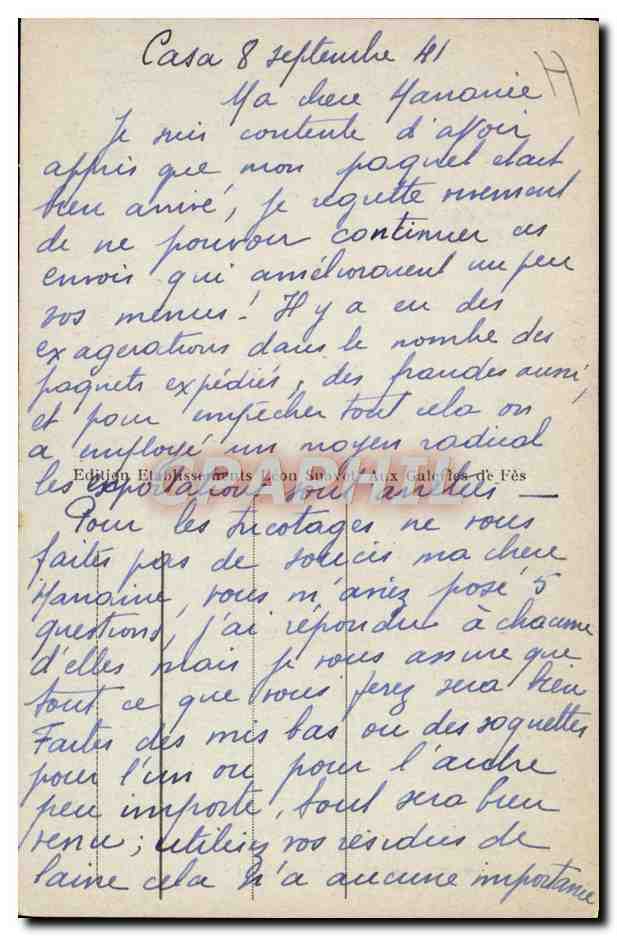 Casa 8 septembre 41
H
Ma chere Mananie
Je suis contente d'avoir
appris que mon paquet etait
bien arrivé, je regrette vivement
de ne pouvoir continuer ces
envois qui amélioraient un peu
vos menus! Il y a eu des
exagerations dans le nombre des
paquets expédiés, des fraudes aussi,
et pour empêcher tout cela on
a employé un moyen radical
Edition Etablissements Léon Aux Galeries de Fès
les exportations sont arrêtées —
Pour les tricotages ne vous
faites pas de soucis ma chere
Mananie, vous m'aviez posé 5
questions, j'ai répondu à chacune
d'elles mais je vous assure que
tout ce que vous ferez sera bien
Faites des mis bas ou des soquettes
pour l'un ou pour l'autre
peu importe, tout sera bien
venu; utilisez vos résidus de
laine cela n'a aucune importance
DELCAMPHIL